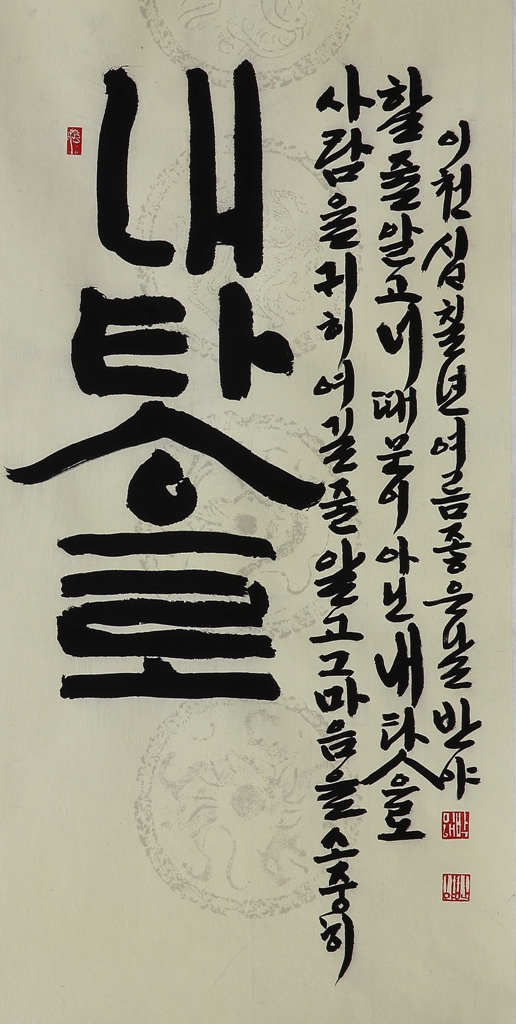 내 탓으로
사람을 귀히 여길 줄 알고 그 마음을 소중히
할 줄 알고 너 때문이 아닌 내 탓으로
이천십칠년 여름 좋은날 반야